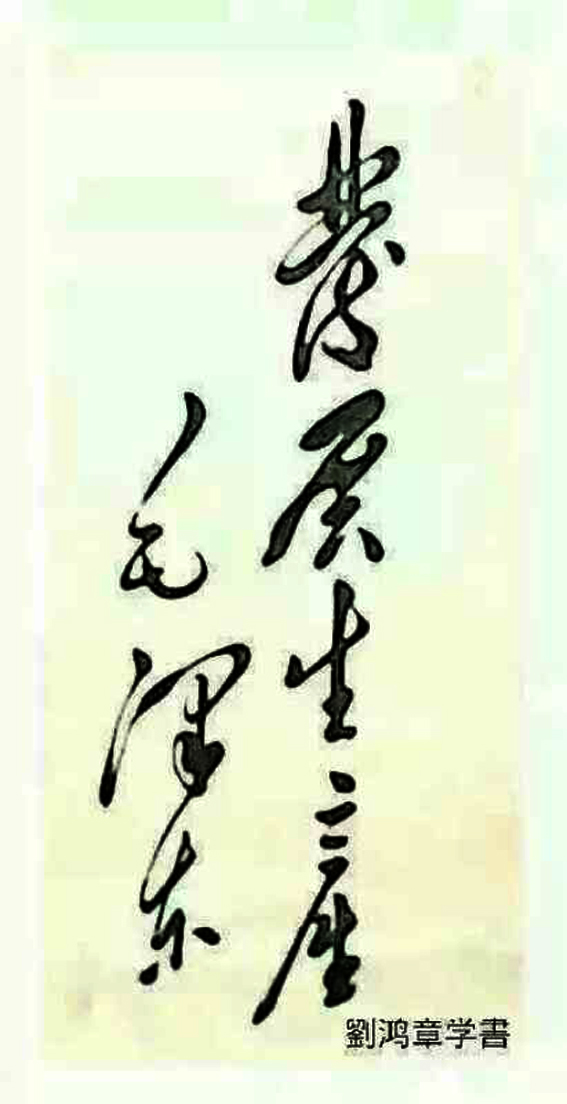 發展生產
毛澤東
劉鸿章学書